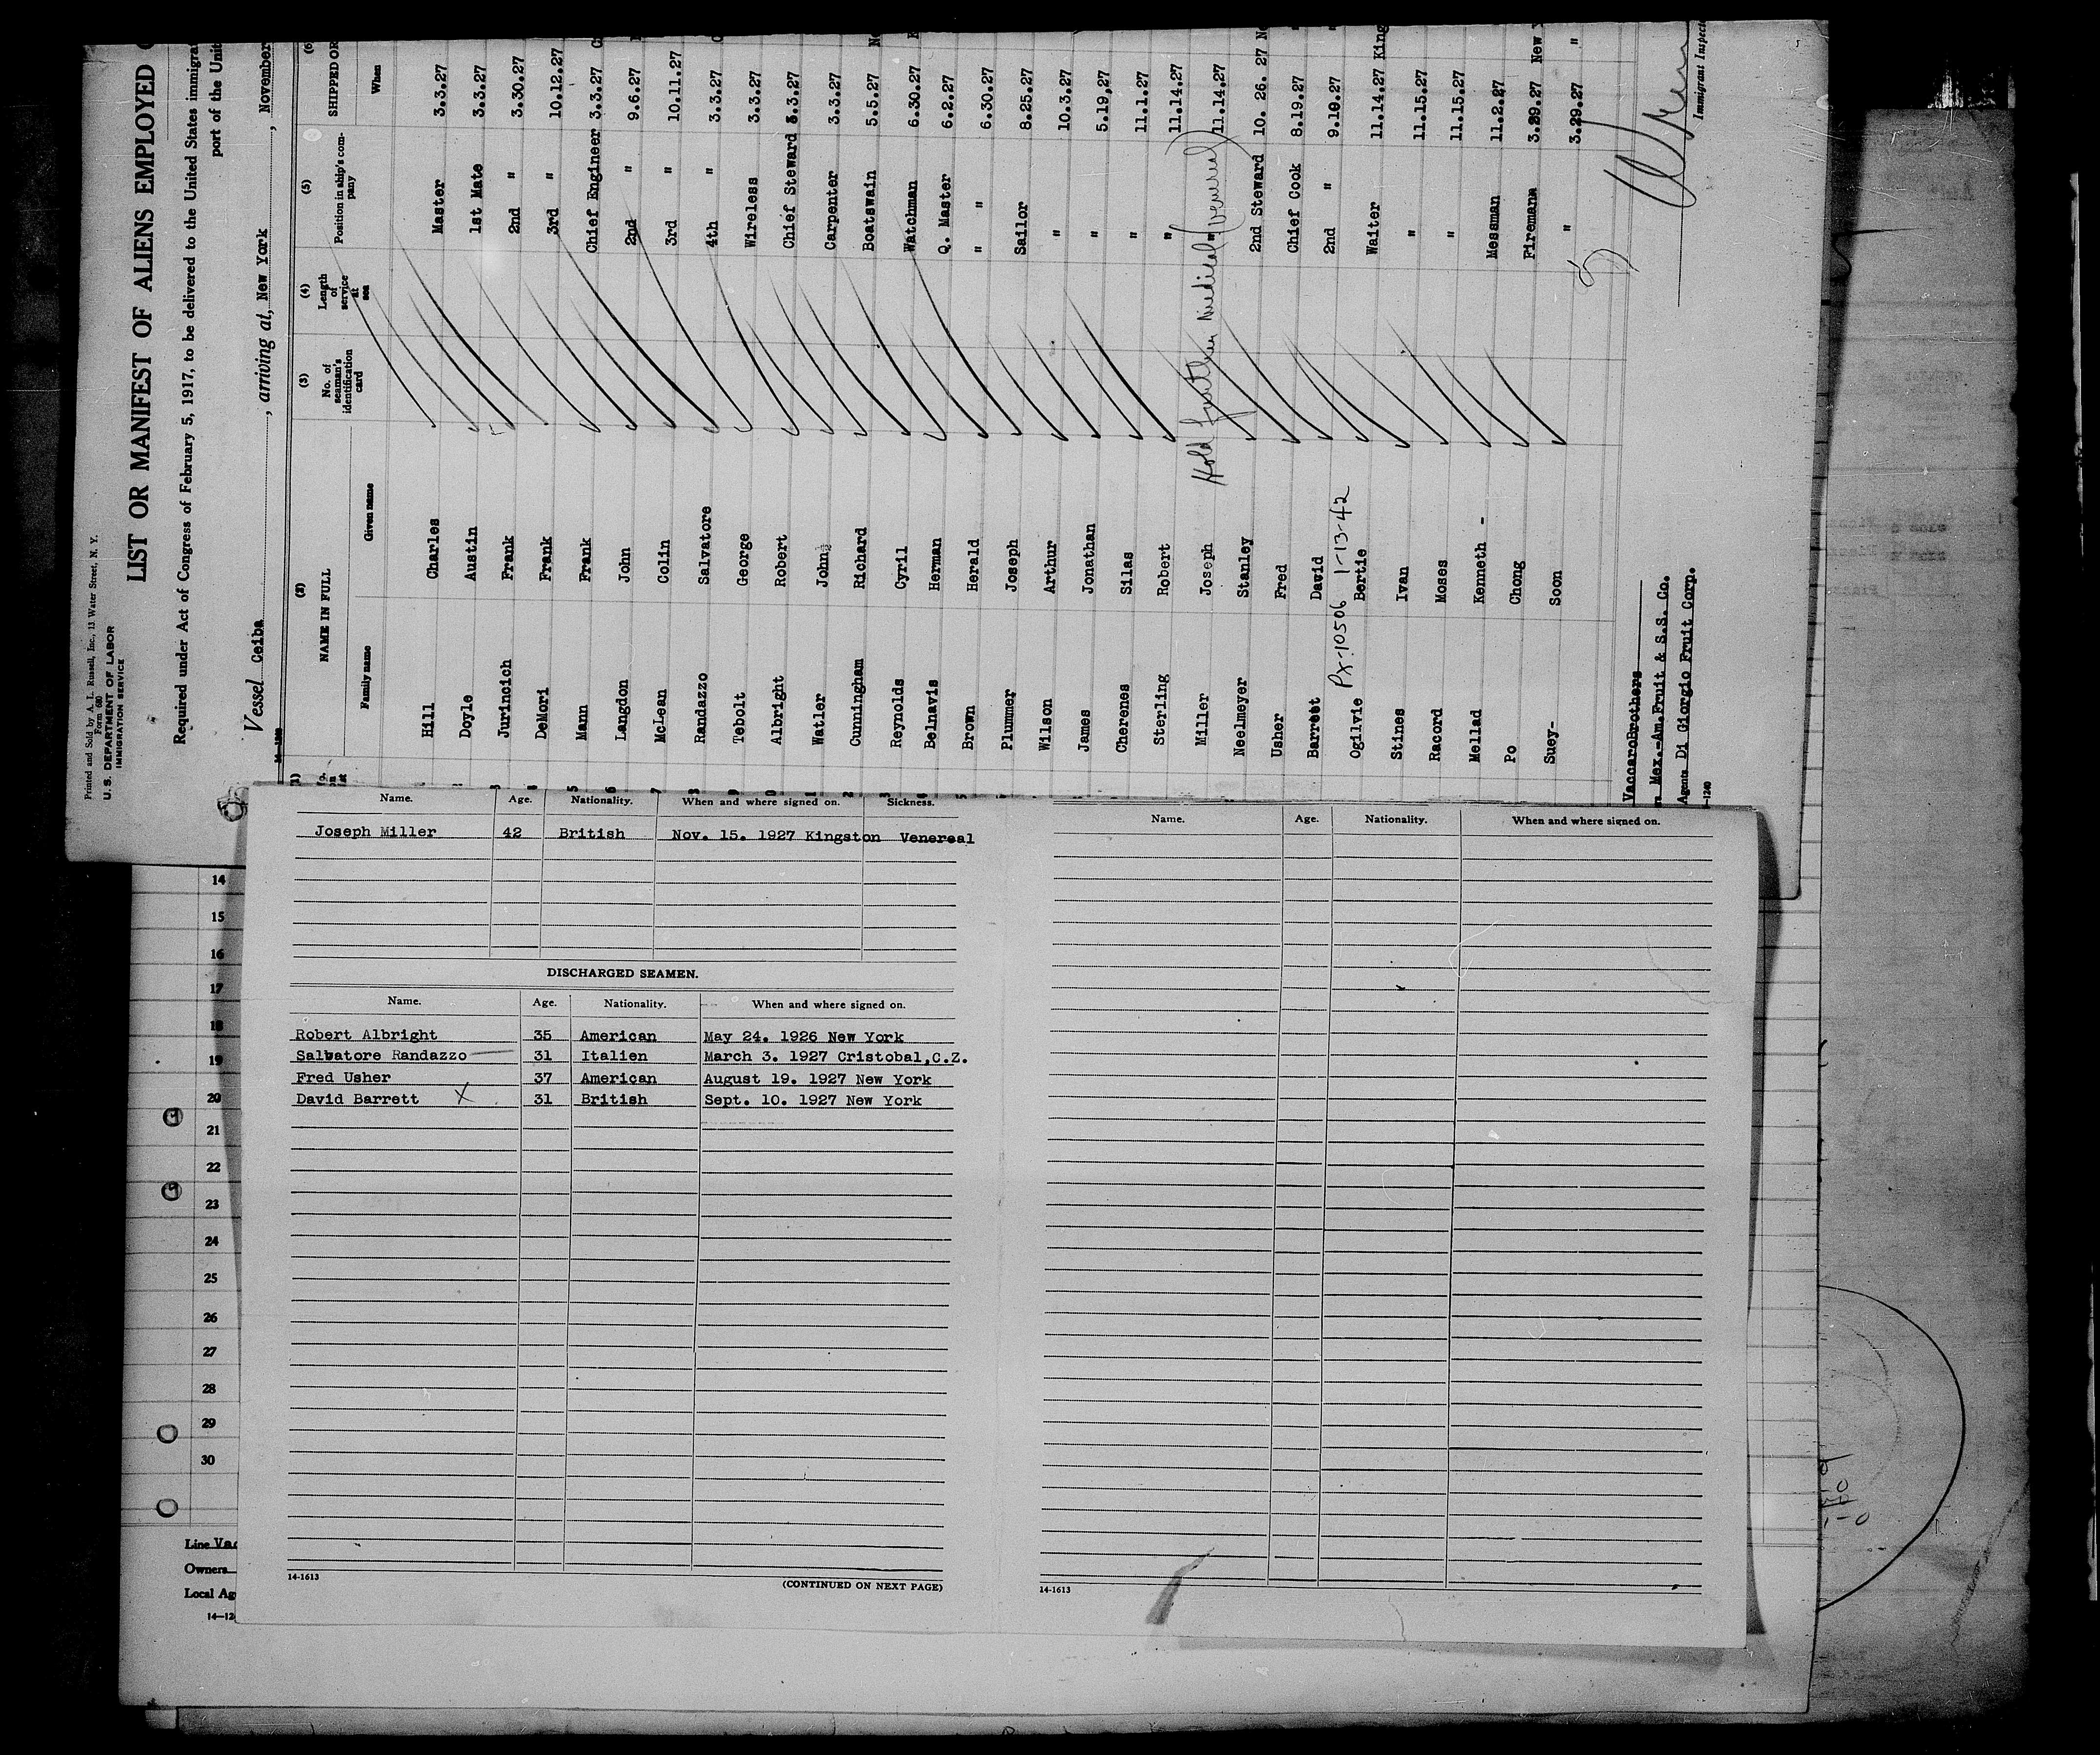 Printed and Sold by A. L. Russell, Inc., 13 Water Street, N. Y.
Form 680
U. S. DEPARTMENT OF LABOR
IMMIGRATION SERVICE
LIST OR MANIFEST OF ALIENS EMPLOYED
Required under Act of Congress of February 5, 1917, to be delivered to the United States immigra
port of the Unit
Vessel Ceiba, arriving at, New York, November
(1) (2) (3) (4) (5) (6)
NAME IN FULL No. of seaman's identification card Length of service at sea Position in ship's company SHIPPED OR
Family name Given name When
Hill Charles Master 3.3.27
Doyle Austin 1st Mate 3.3.27
Jurincich Frank 2nd " 3.30.27
DeMori Frank 3rd " 10.12.27
Mann Frank Chief Engineer 3.3.27
Langdon John 2nd " 9.6.27
McLean Colin 3rd " 10.11.27
Randazzo Salvatore 4th " 3.3.27
Tebolt George Wireless 3.3.27
Albright Robert Chief Steward 3.3.27
Watler John Carpenter 3.3.27
Cunningham Richard Boatswain 5.5.27
Reynolds Cyril Watchman 6.30.27
Belnavis Herman Q. Master 6.2.27
Brown Herald " " 6.30.27
Plummer Joseph Sailor 8.25.27
Wilson Arthur " 10.3.27
James Jonathan " 5.19,27
Cherenes Silas " 11.1.27
Sterling Robert " 11.14.27
Miller Joseph Hold further medical (venereal) " 11.14.27
Neelmeyer Stanley 2nd Steward 10. 26. 27
Usher Fred Chief Cook 8.19.27
Barrett David 2nd " 9.10.27
Ogilvie Bertie Waiter 11.14.27 King
PX-10506 1-13-42
Stines Ivan " 11.15.27
Racord Moses " 11.15.27
Mellad Kenneth - Messman 11.2.27
Po Chong Firemana 3.29.27 New
Suey- Soon " 3.29.27 "
Immigrant Inspect
VaccaroBrothers
Mex.-Am.Fruit & S.S. Co.
Agents Di Giorgio Fruit Corp.
Name. Age. Nationality. When and where signed on. Sickness.
Joseph Miller 42 British Nov. 15. 1927 Kingston Venereal
DISCHARGED SEAMEN.
Name. Age. Nationality. When and where signed on.
Robert Albright 35 American May 24. 1926 New York
Salvatore Randazzo 31 Italien March 3. 1927 Cristobal,C.Z.
Fred Usher 37 American August 19. 1927 New York
David Barrett X 31 British Sept. 10. 1927 New York
14-1613
(CONTINUED ON NEXT PAGE)
Name. Age. Nationality. When and where signed on.
14-1613
14
15
16
17
18
19
20
21
22
23
24
25
26
27
28
29
30
Line Vac
Owners
Local Ag
14-12